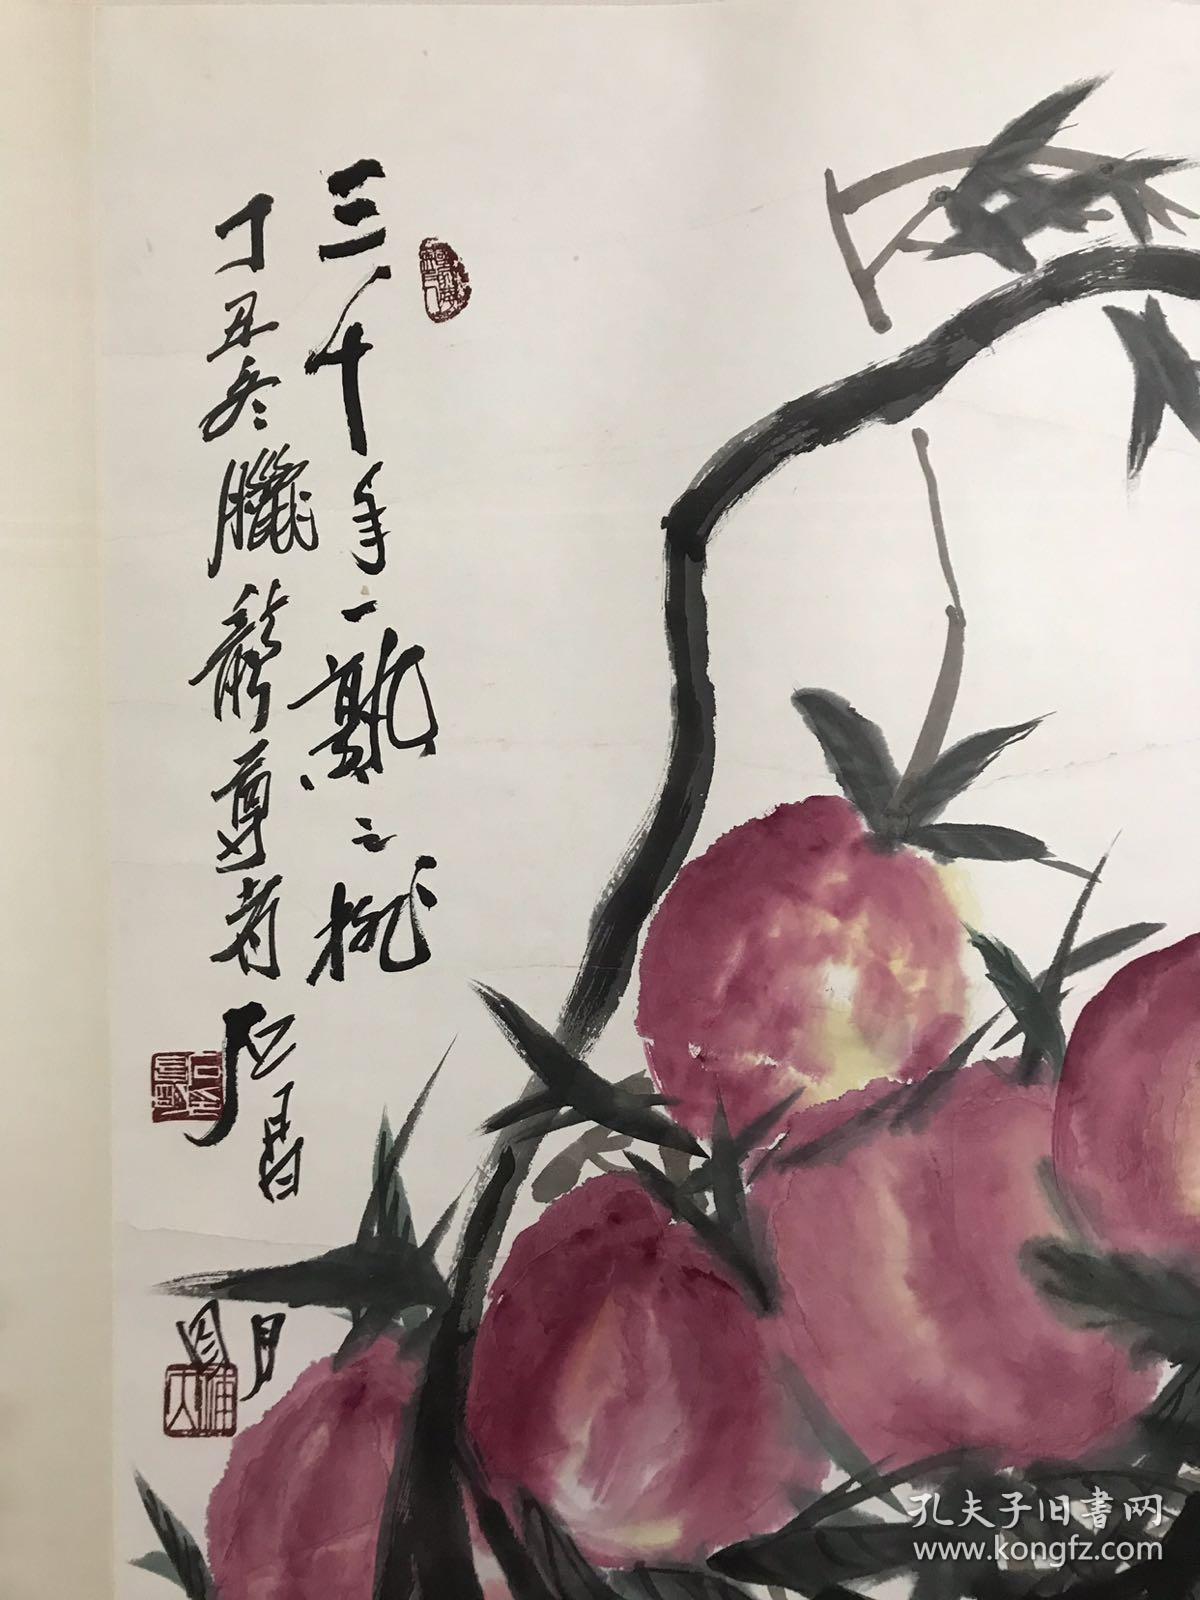 三千年一熟之桃
丁丑冬臘龍尊者
石

月
孔夫子旧書网
www.kongfz.com